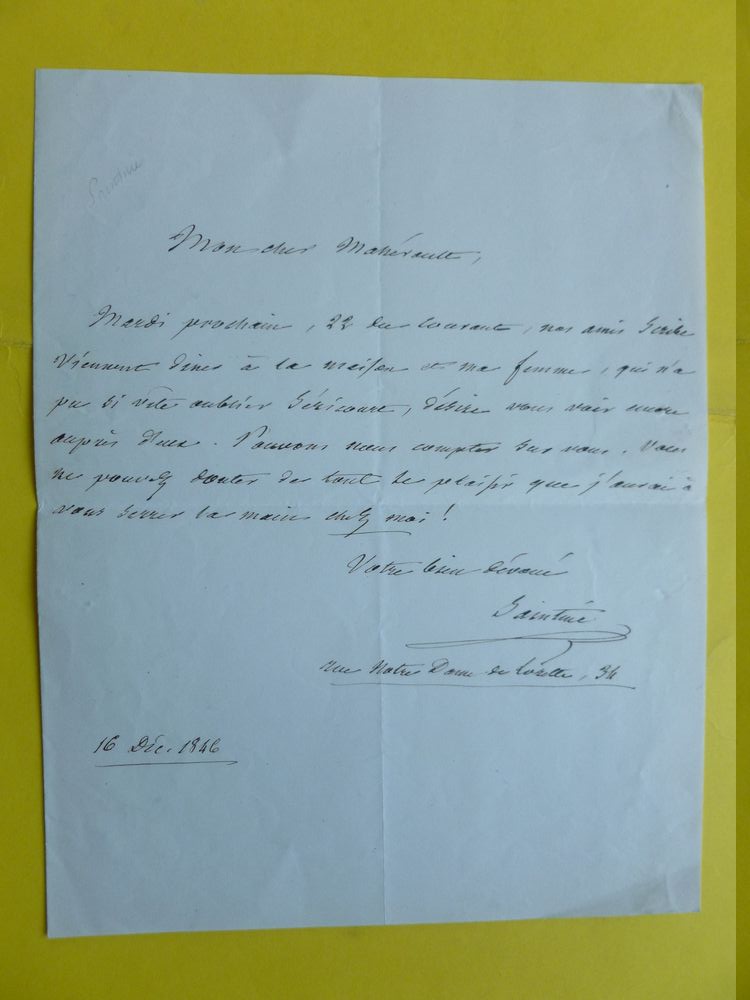 Saintine
Mon cher Mahérault,
Mardi prochain, 22 du courant, nos amis Scribe
viennent diner à la maison et ma femme, qui n'a
pu si vite oublier Séricourt, désire vous voir encore
auprès d'eux. Pouvons nous compter sur vous. Vous
ne pouvez douter de tout le plaisir que j'aurai à
vous serrer la main chez moi!
Votre bien dévoué
Saintine
rue Notre Dame de Lorette, 34
16 Déc. 1846